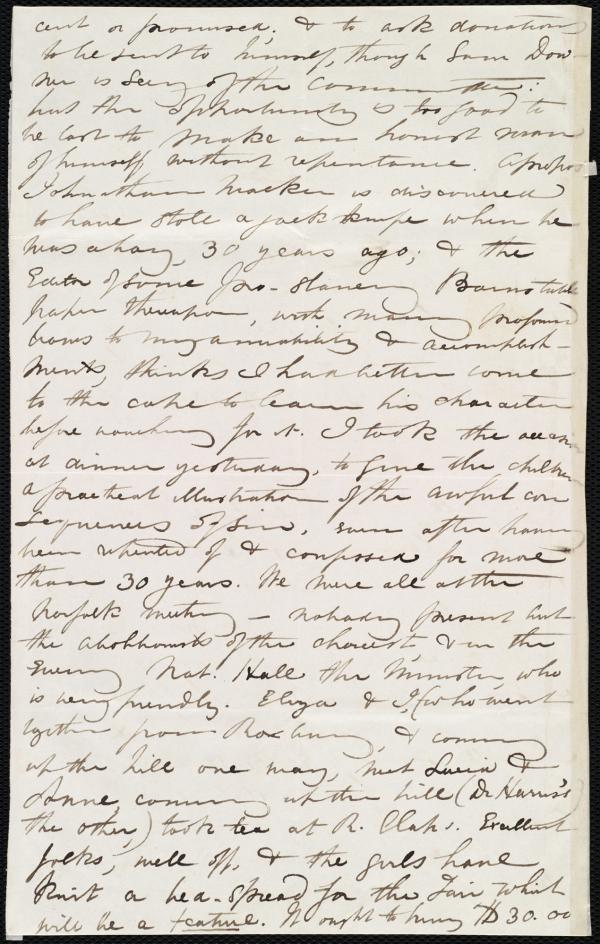 cent or promised; & to ask donations
to be sent to himself, though Sam Dow-
ner is Secy of the Committee:
but the opportunity is too good to
be lost to make an honest man
of himself without repentance. Apropos
Johnathan Walker is discovered
to have stole a jack knife when he
was a boy, 30 years ago; & the
Editor of some pro-slavery Barnstable
paper thereupon, with many profound
bows to my amiability & accomplish-
ments, thinks I had better come
to the cape to learn his character
before vouching for it. I took the occasion
at dinner yesterday, to give the children
a practical illustration of the awful con
sequences of sin, even after having
been repented of & confessed for more
than 30 years. We were all at the
Norfolk meeting — nobody present but
the abolitionists of the choicest, & in the
Evening Nat. Hall the Minister, who
is very friendly. Eliza & I (who went
together from Roxbury, & coming
up the hill one way, met Lucia &
Anne, coming up the hill (Dr Harris's
the other,) took tea at R. Claps. Excellent
folks, well off, & the girls have
knit a bed-spread for the Fair which
will be a feature. It ought to bring $ 30.00